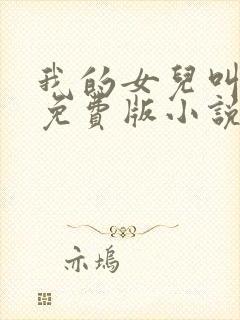 我的女兒叫
免費版小說
亦塢